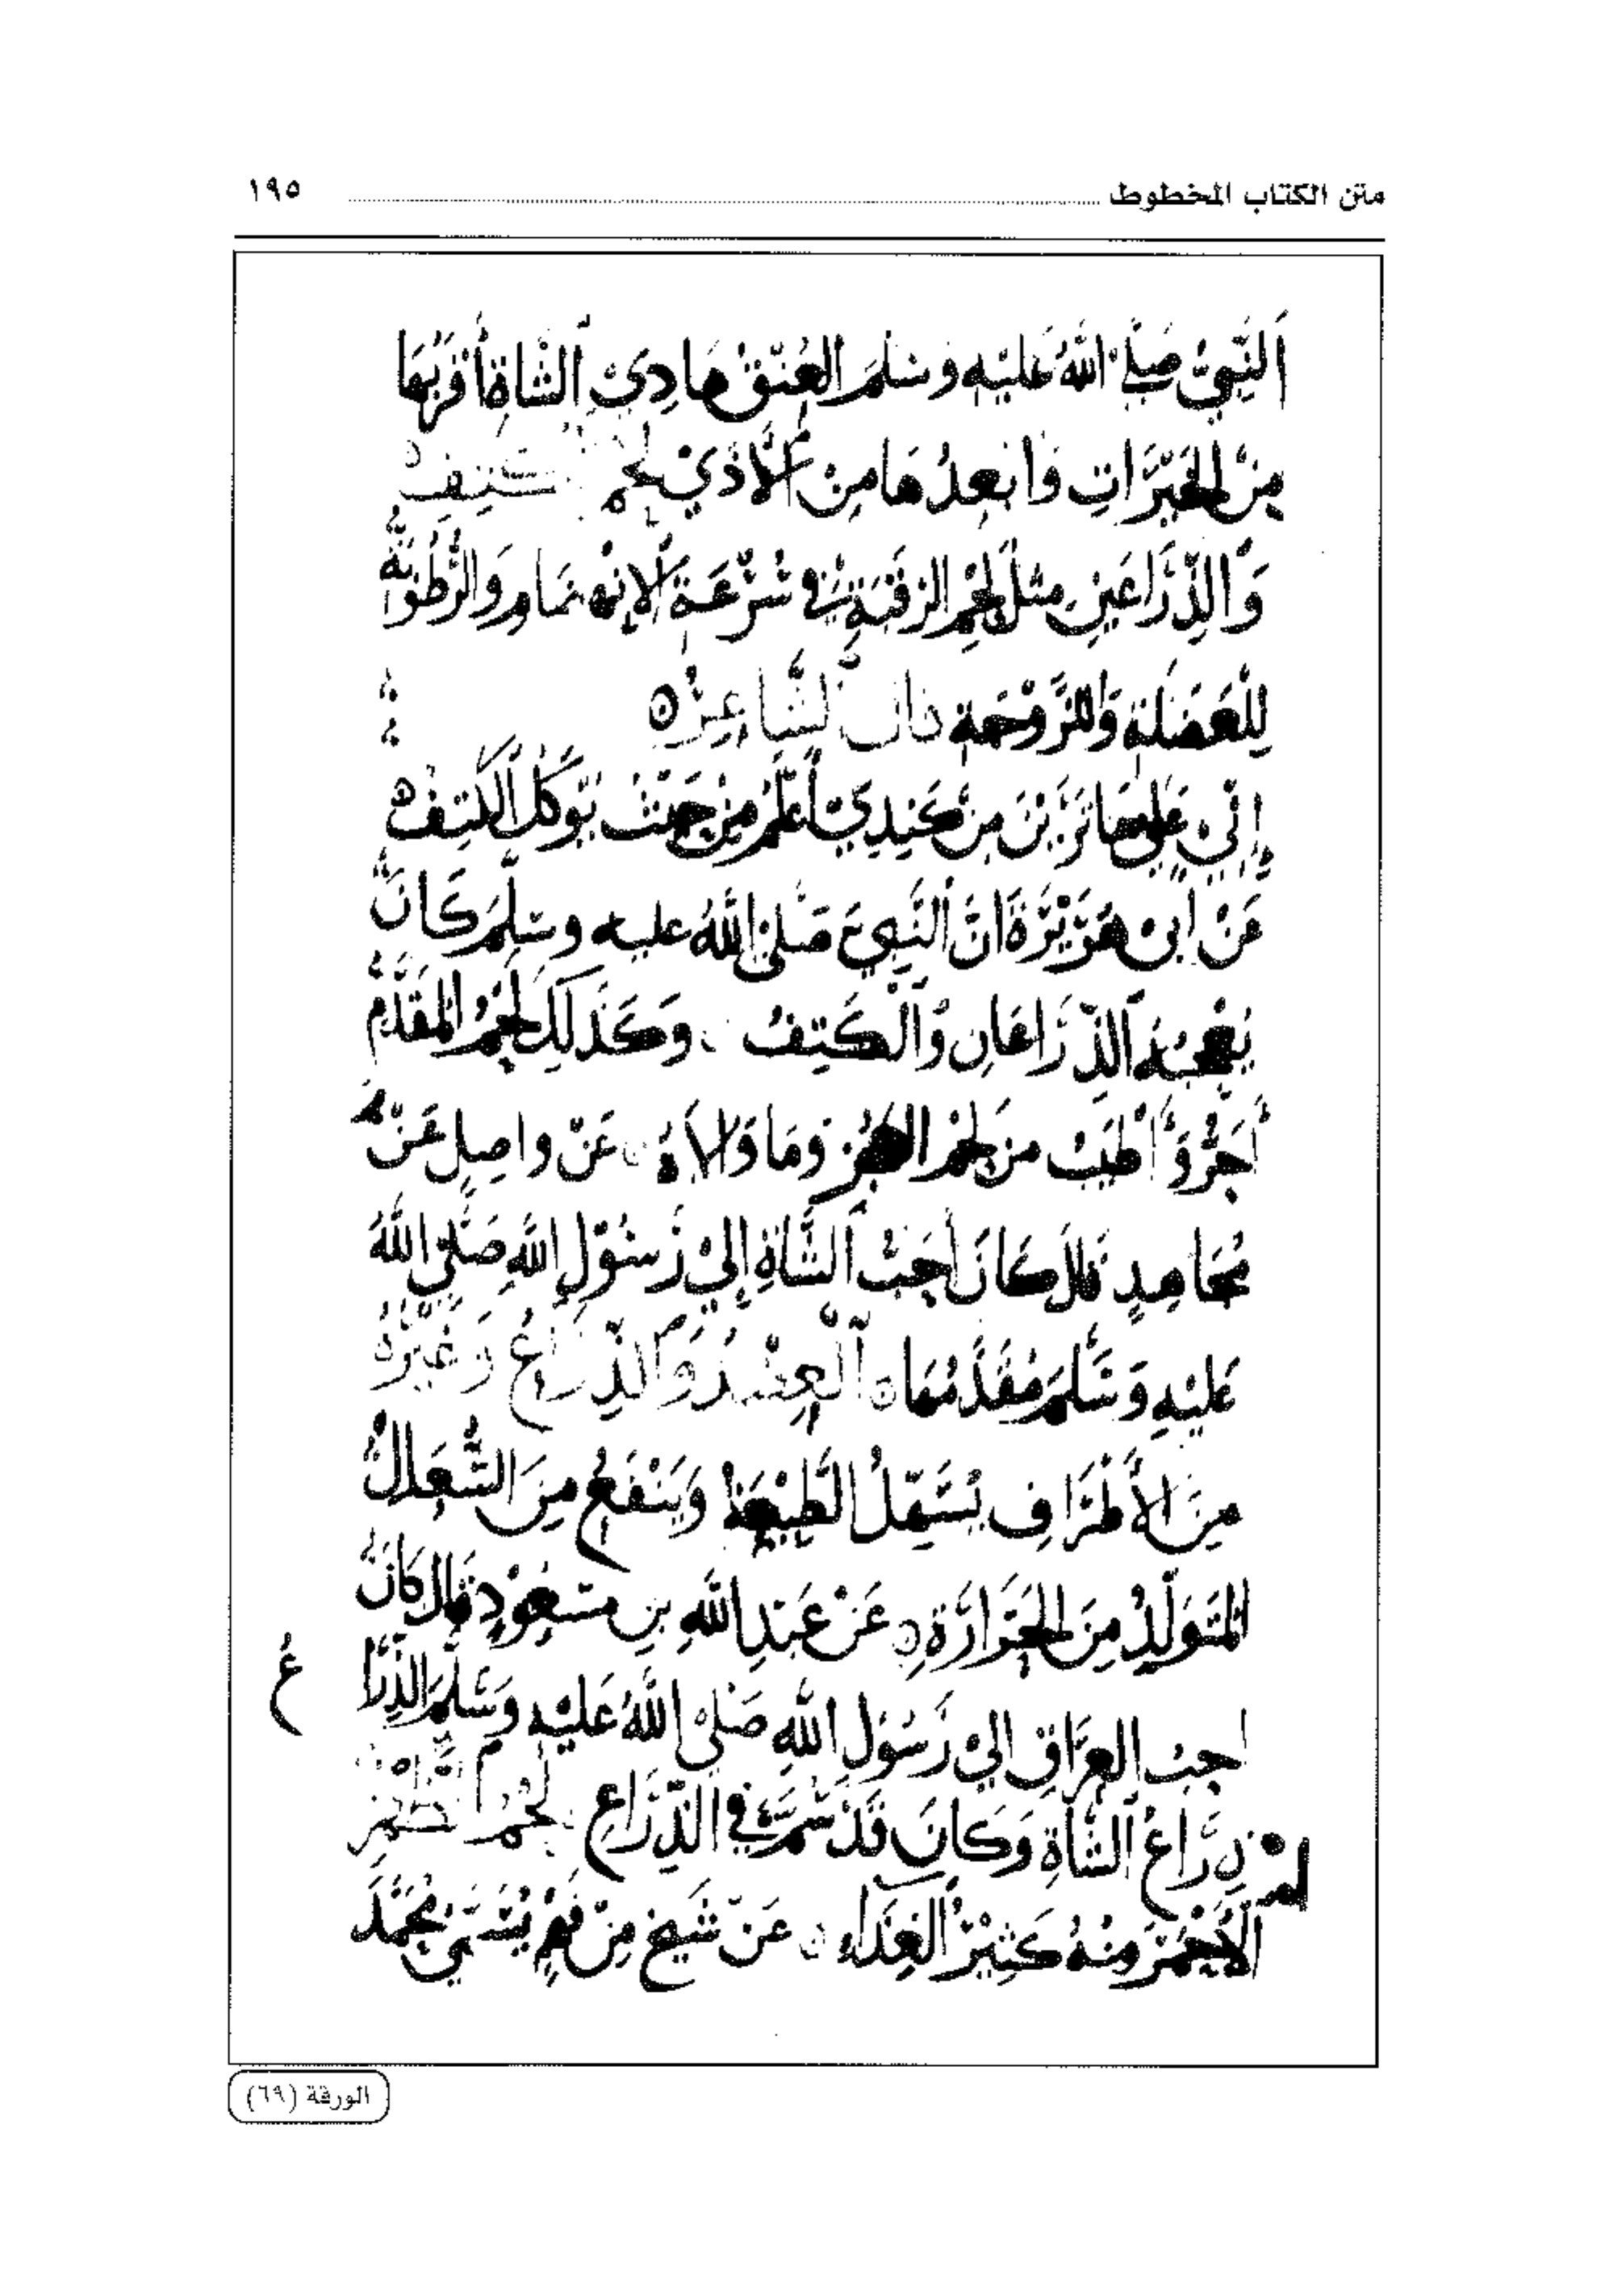 متن الكتاب المخطوط ١٩٥
اَلنَّبِيُّ صَلَّى اللهُ عَلَيْهِ وَسَلَّمَ الْعُنُقُ هَادِيُ الشَّاةِ أَقْرَبُهَا
مِنَ الْخَيْرَاتِ وَأَبْعَدُهَا مِنَ الْأَذَيْ لحم الكتِفِ
وَالذِّرَاعَيْنِ مِثْلُ لَحْمِ الرَّقَبَةِ فِي سُرْعَةِ الْإِنْهِضَامِ وَالرُّطُوبَةِ
لِلْعَضَلَةِ وَاللُّزُوْجَةِ قال الشَّاعِرُ
إِنِّيْ عَلَى مَا تَرَيْنَ مِنْ كَبِدِيْ أَعْلَمُ مِنْ حَيْثُ تُؤْكَلُ الْكَتِفُ
عَنْ أبي هُرَيْرَةَ اَنَّ النَّبِيَّ صَلَّى اللهُ عليه وسَلَّمَ كَانَ
يُعْجِبُهُ الذِّرَاعَانِ وَالْكَتِفُ وَكَذَلِكَ لَحْمُ الْمُقَدَّمِ
أَخَفُّ وَأَطْيَبُ مِنْ لَحْمِ الْعَجُزِ وَمَا وَالَاهُ عَنْ واصِلٍ عَنْ
مُجَاهِدٍ قَالَ كَانَ أَحَبُّ الشَّاةِ إِلَيْ رَسُوْلِ اللهِ صَلَّى اللهُ
عَلَيْهِ وَسَلَّمَ مُقَدَّمُهَا اَلْعَضُدُ وَالذِّرَاعُ وَغَيْرُهُ
مِنَ الْأَطْرَافِ يُسَهِّلُ الطَّبِيْعَةَ وَيَنْفَعُ مِنَ السُّعَالِ
الْمُتَوَلِّدِ مِنَ الْحَرَارَةِ عَنْ عَبْدِ اللهِ بنِ مَسْعُوْدٍ قَالَ كَانَ
احبُ العُرَاقِ اليْ رَسُوْلِ اللهِ صَلَّى اللهُ عَلَيْهِ وَسَلَّمَ الذِّرَاعُ
ذِرَاعُ الشَّاةِ وَكَانَ قَدْ سُمَّ فِي الذِّرَاعِ لَحْمُ الظَّهْرِ
الْأَحْمَرُ مِنْهُ كَثِيْرُ الْغِذَاءِ عَنْ شَيْخٍ مِنْ فَهْمٍ يُسَمَّى مُحَمَّدَ
الورقة (٦٩)